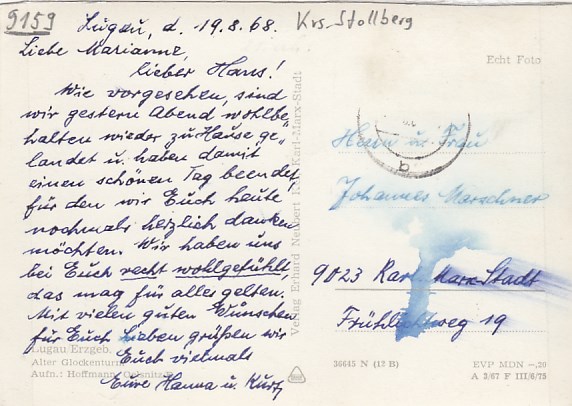 9159
Lugau, d. 19.8.68. Krs. Stollberg
Liebe Marianne,
lieber Hans!
Wie vorgesehen, sind
wir gestern Abend wohlbe-
halten wieder zu Hause ge-
landet u. haben damit
einen schönen Tag beendet,
für den wir Euch heute
nochmals herzlich danken
möchten. Wir haben uns
bei Euch recht wohlgefühlt,
das mag für alles gelten.
Mit vielen guten Wünschen
für Euch Lieben grüßen wir
Euch vielmals
Eure Hanna u. Kurt
Lugau/Erzgeb.
Alter Glockenturm
Aufn.: Hoffmann, Oelsnitz
Verlag Erhard Neubert KG, Karl-Marx-Stadt
Echt Foto
Herrn u. Frau
Johannes Marschner
9023 Karl-Marx-Stadt
Frühlichtweg 19
36645 N (12 B)
EVP MDN -,20
A 3/67 F III/6/75